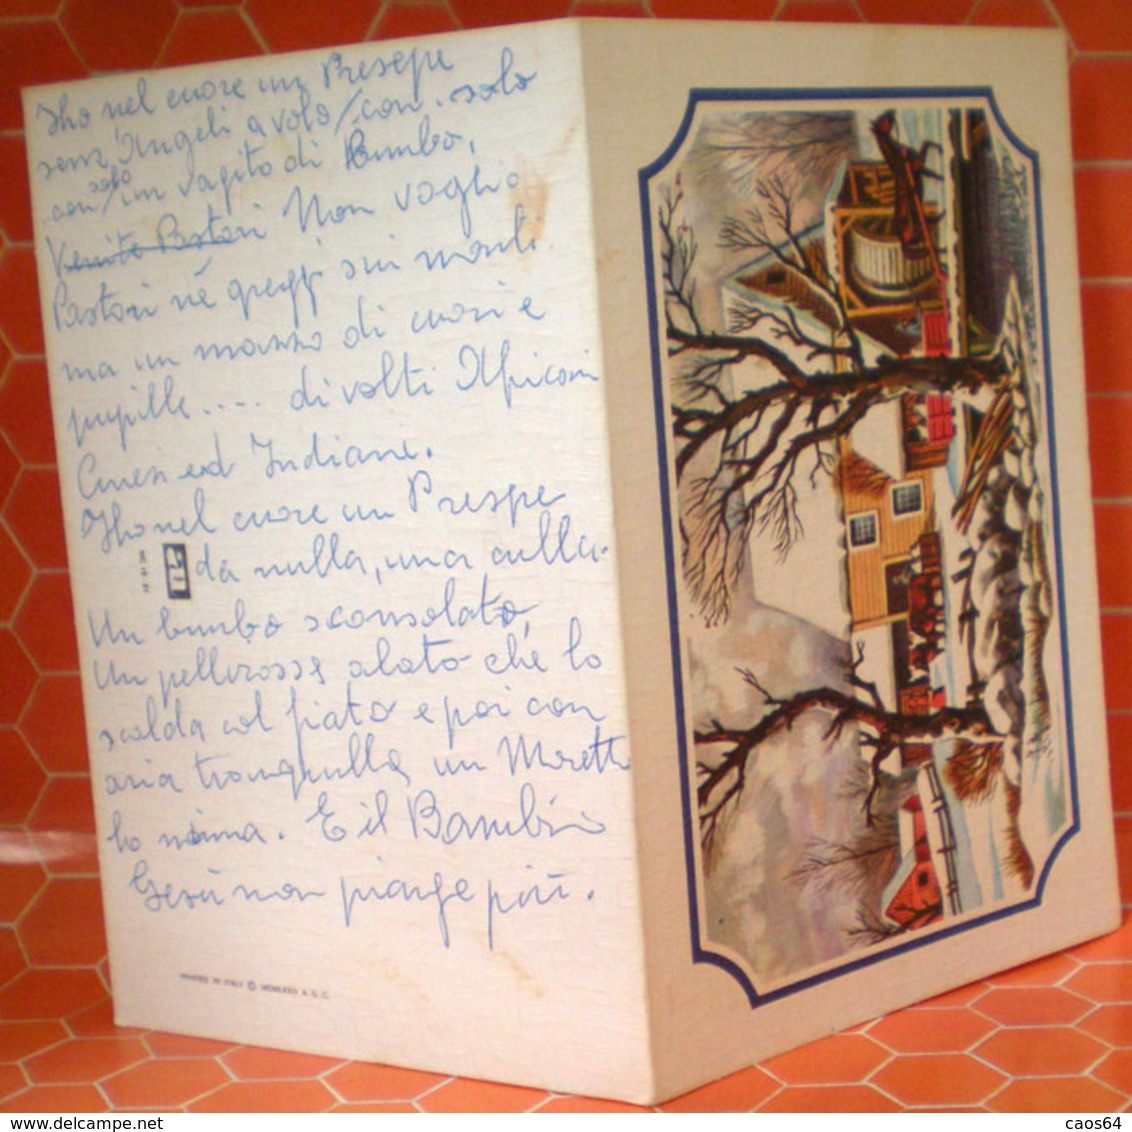 Ho nel cuore un Presepe
senz'Angeli a volo/con solo
con/solo un vagito di Bimbo,
Venite Pastori Non voglio
Pastori né greggi sui monti
ma un mazzo di cuori e
pupille.... di volti Africani
Cinesi ed Indiani.
Ho nel cuore un Prespe
da nulla, una culla.
Un bimbo sconsolato,
Un pellirosse alato che lo
scalda col fiato e poi con
aria tranquilla, un Moretto
lo ninna. E il Bambin
Gesù non piange più.
PRINTED IN ITALY © MCMLXXII A.G.C.
caos64